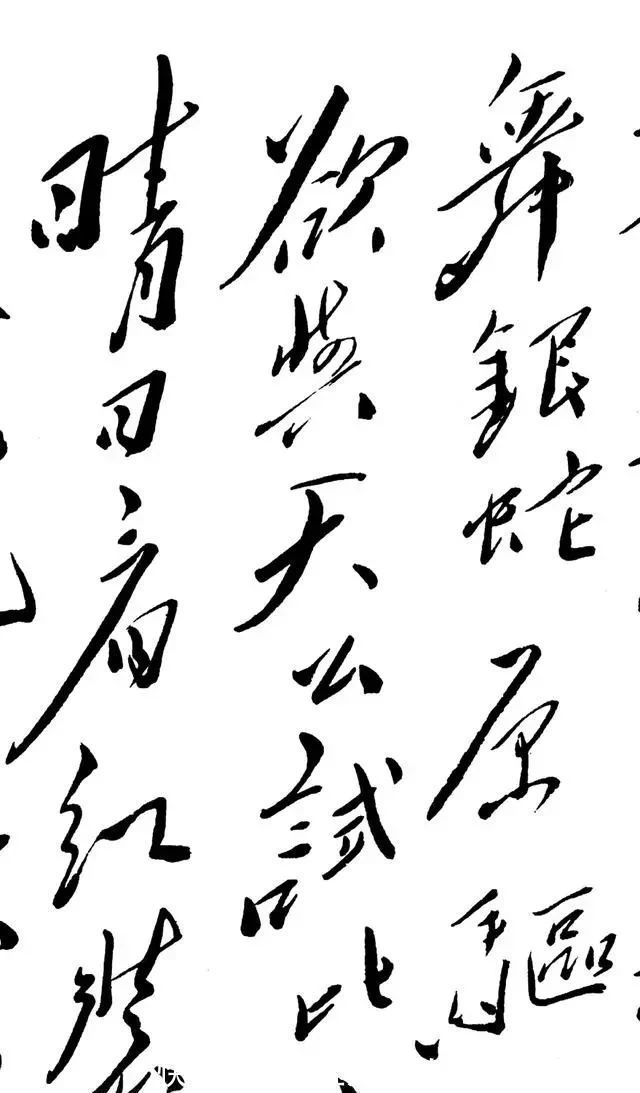 舞銀蛇原驅
欲與天公試比
晴日看紅裝